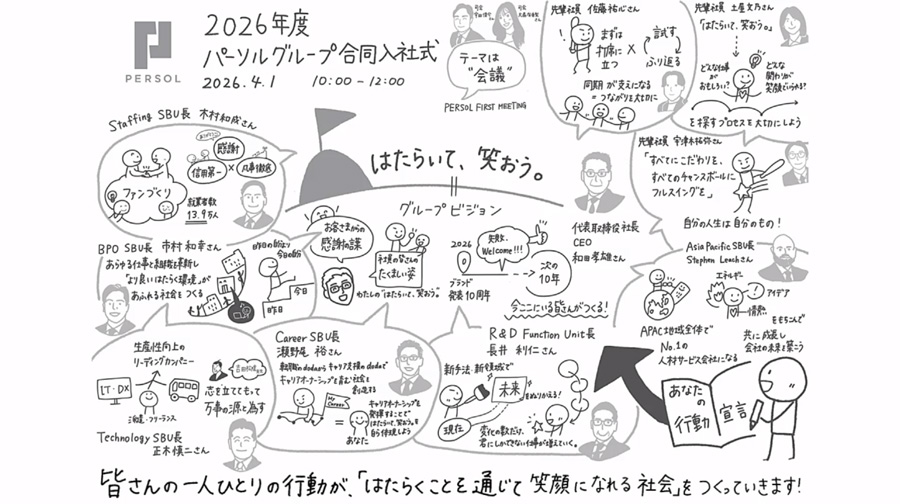 PERSOL
2026年度
パーソルグループ合同入社式
2026.4.1 10:00-12:00
司会
司会
テーマは
"会議"
PERSOL FIRST MEETING
先輩社員 佐藤祐心さん
まずは
打席に
立つ
×
試す
ふり返る
同期が支えになる
=つながりを大切に
先輩社員 土屋文乃さん
「はたらいて、笑おう。」
どんな仕事が
おもしろい?
どんな
関わりが
笑顔でいられる?
を探すプロセスを大切にしよう
Staffing SBU長 木村和成さん
感謝
信用第一
×
凡事徹底
ファンづくり
就業者数
13.9万人
はたらいて、笑おう。
=
グループビジョン
お客さまからの
感謝の謀
社員の皆さんの
たくましい姿
わたしの「はたらいて、笑おう。」
2026
ブランド
発表10周年
失敗、
Welcome!!!
次の
10年
今ここにいる皆さんがつくる!
代表取締役社長
CEO
和田孝雄さん
先輩社員 宇津木祐弥さん
「すべてにこだわりを、
すべてのチャンスボールに
フルスイングを」
自分の人生は自分のもの!
BPO SBU長 市村和幸さん
あらゆる仕事と組織を革新し
「より良いはたらく環境」が
あふれる社会をつくる
昨日の自分より
今日の自分
今日
昨日
Asia Pacific SBU長
Stephen Leachさん
エネルギー
アイデア
情熱
をもちこんで
共に成長し
会社の未来を築こう
APAC地域全体で
No.1の
人材サービス会社になる
生産性向上の
リーディングカンパニー
IT・DX
派遣・フリーランス
志を立ててもって
万事の源と為す
Technology SBU長
正木慎二さん
Career SBU長
瀬野尾 裕さん
転職のdodaからキャリア支援のdodaで
キャリアオーナーシップを育む社会を
創造する
My
Career
=
あなた
キャリアオーナーシップを
発揮することで
はたらいて、笑おう。を
自ら体現しよう
R&D Function Unit長
長井利仁さん
新手法、新領域で
未来
をぬりかえる!
現在
変化の数だけ、
君にしかできない仕事が増えていく。
あなた
の
行動
宣言
皆さんの一人ひとりの行動が、「はたらくことを通じて笑顔になれる社会」をつくっていきます!